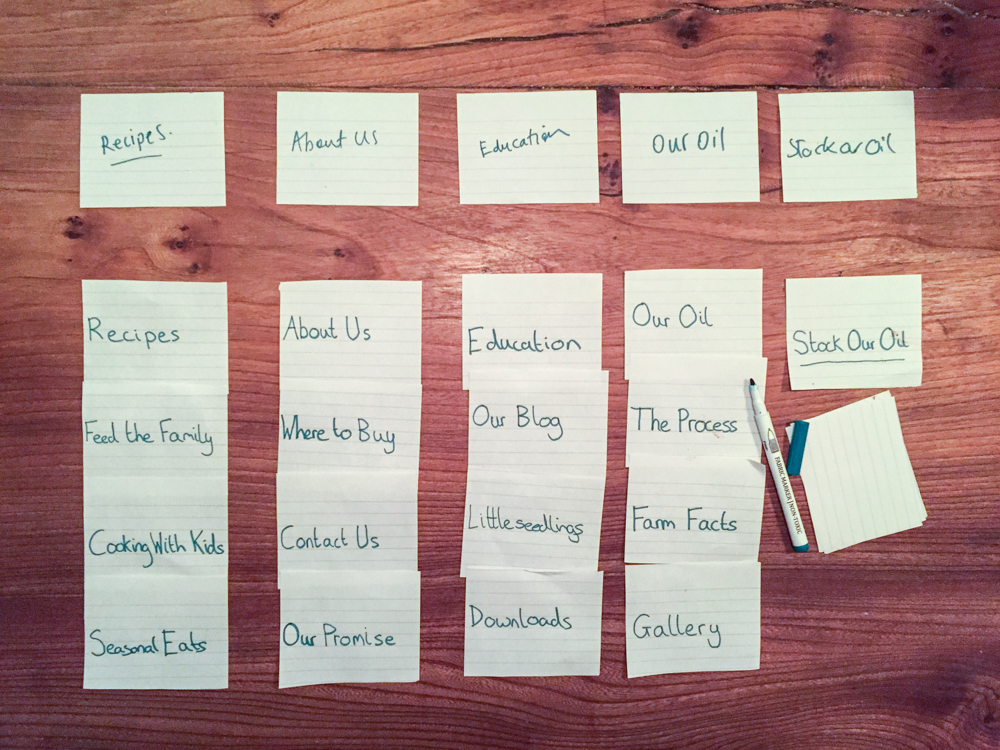 Recipes.
About Us
Education
Our Oil
Stock our Oil
Recipes
Feed the Family
Cooking With Kids
Seasonal Eats
About Us
Where to Buy
Contact Us
Our Promise
Education
Our Blog
Littleseedlings
Downloads
Our Oil
The Process
Farm Facts
Gallery
Stock Our Oil
FABRIC MARKER | NON-TOXIC